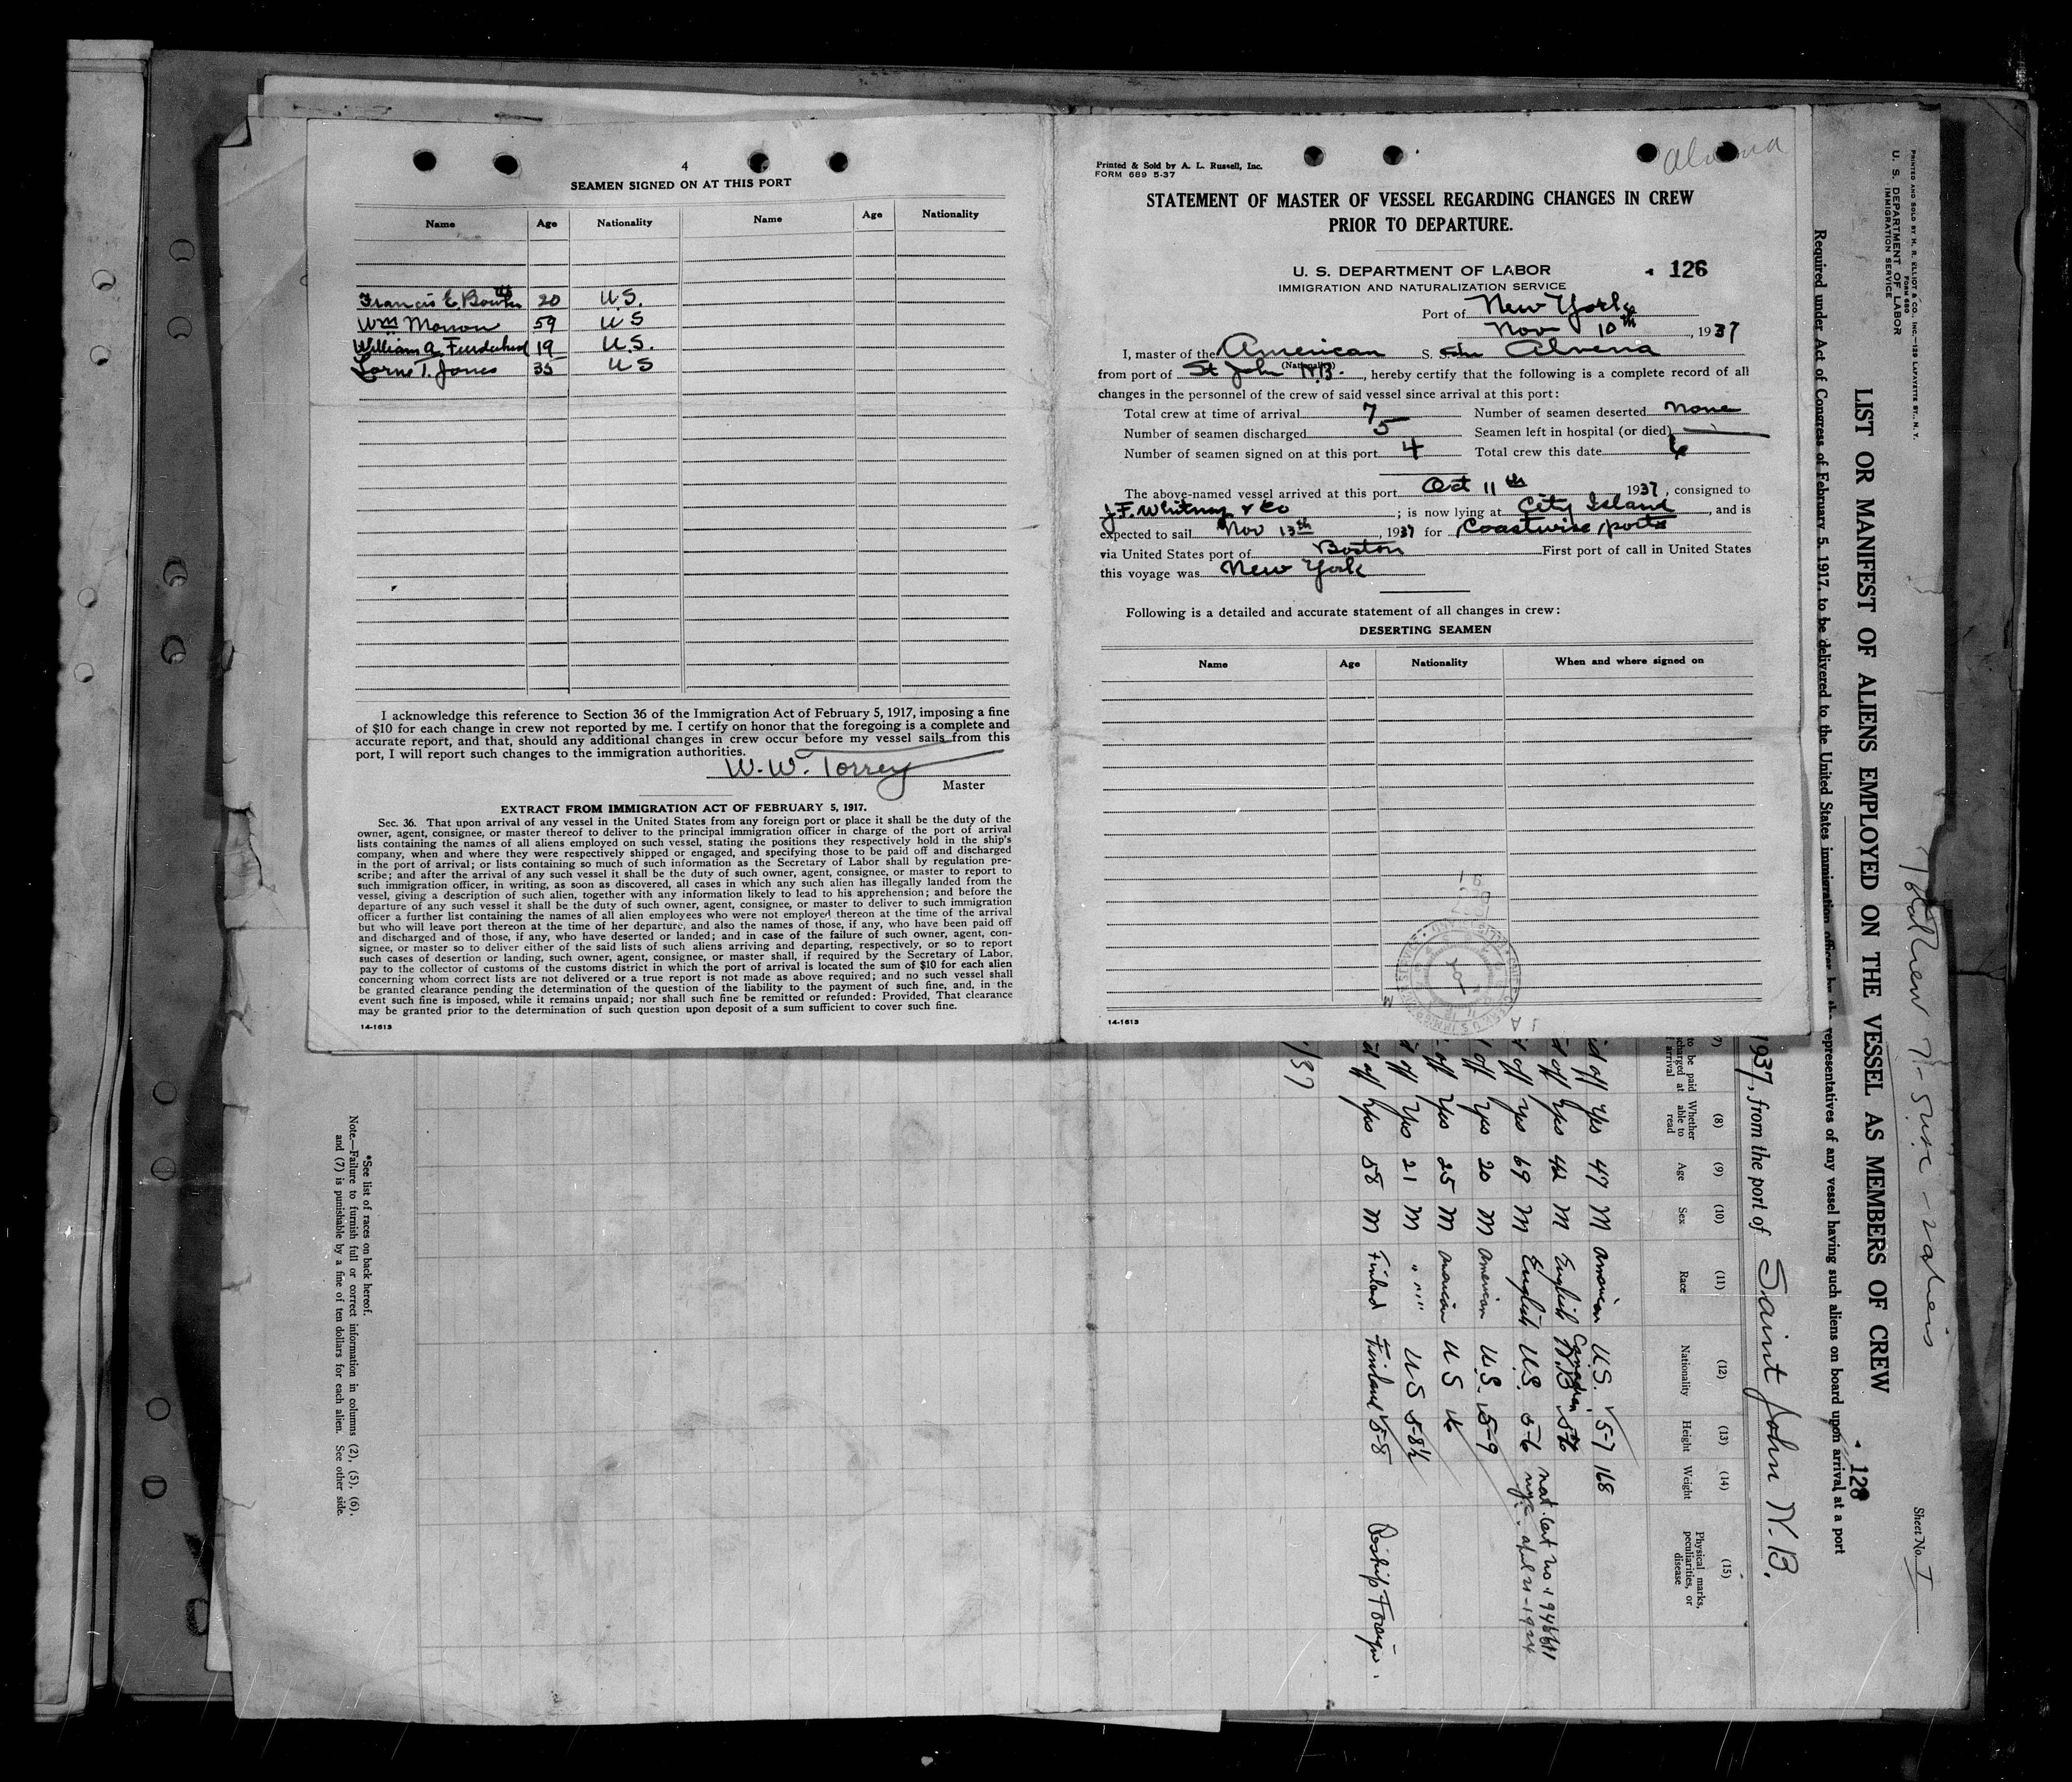 4
SEAMEN SIGNED ON AT THIS PORT
Name Age Nationality Name Age Nationality
Francis E. 20 U.S.
Wm 59 U S
William A. 19 U.S.
Lorne T. Jones 35 U S
I acknowledge this reference to Section 36 of the Immigration Act of February 5, 1917, imposing a fine
of $10 for each change in crew not reported by me. I certify on honor that the foregoing is a complete and
accurate report, and that, should any additional changes in crew occur before my vessel sails from this
port, I will report such changes to the immigration authorities.
W. W. Torrey
Master
EXTRACT FROM IMMIGRATION ACT OF FEBRUARY 5, 1917.
Sec. 36. That upon arrival of any vessel in the United States from any foreign port or place it shall be the duty of the
owner, agent, consignee, or master thereof to deliver to the principal immigration officer in charge of the port of arrival
lists containing the names of all aliens employed on such vessel, stating the positions they respectively hold in the ship's
company, when and where they were respectively shipped or engaged, and specifying those to be paid off and discharged
in the port of arrival; or lists containing so much of such information as the Secretary of Labor shall by regulation pre-
scribe; and after the arrival of any such vessel it shall be the duty of such owner, agent, consignee, or master to report to
such immigration officer, in writing, as soon as discovered, all cases in which any such alien has illegally landed from the
vessel, giving a description of such alien, together with any information likely to lead to his apprehension; and before the
departure of any such vessel it shall be the duty of such owner, agent, consignee, or master to deliver to such immigration
officer a further list containing the names of all alien employees who were not employed thereon at the time of the arrival
but who will leave port thereon at the time of her departure, and also the names of those, if any, who have been paid off
and discharged and of those, if any, who have deserted or landed; and in case of the failure of such owner, agent, con-
signee, or master so to deliver either of the said lists of such aliens arriving and departing, respectively, or so to report
such cases of desertion or landing, such owner, agent, consignee, or master shall, if required by the Secretary of Labor,
pay to the collector of customs of the customs district in which the port of arrival is located the sum of $10 for each alien
concerning whom correct lists are not delivered or a true report is not made as above required; and no such vessel shall
be granted clearance pending the determination of the question of the liability to the payment of such fine, and, in the
event such fine is imposed, while it remains unpaid; nor shall such fine be remitted or refunded: Provided, That clearance
may be granted prior to the determination of such question upon deposit of a sum sufficient to cover such fine.
14-1613
Alvena
Printed & Sold by A. L. Russell, Inc.
FORM 689 5-37
STATEMENT OF MASTER OF VESSEL REGARDING CHANGES IN CREW
PRIOR TO DEPARTURE.
U. S. DEPARTMENT OF LABOR 126
IMMIGRATION AND NATURALIZATION SERVICE
Port of New York
Nov 10th, 1937
I, master of the American S. S. Schr Alvena
(Nationality)
from port of St John N.B., hereby certify that the following is a complete record of all
changes in the personnel of the crew of said vessel since arrival at this port:
Total crew at time of arrival 7 Number of seamen deserted None
Number of seamen discharged 5 Seamen left in hospital (or died) —
Number of seamen signed on at this port 4 Total crew this date 6
The above-named vessel arrived at this port Oct 11th 1937, consigned to
J.F. Whitney & Co; is now lying at City Island, and is
expected to sail Nov 13th, 1937 for Coastwise ports
via United States port of Boston First port of call in United States
this voyage was New York
Following is a detailed and accurate statement of all changes in crew:
DESERTING SEAMEN
Name Age Nationality When and where signed on
14-1613
PRINTED AND SOLD BY H. R. ELLIOT & CO., INC.—129 LAFAYETTE ST., N. Y.
FORM 680
U. S. DEPARTMENT OF LABOR
IMMIGRATION SERVICE
Sheet No. 1
LIST OR MANIFEST OF ALIENS EMPLOYED ON THE VESSEL AS MEMBERS OF CREW
128
Required under Act of Congress of February 5, 1917, to be delivered to the United States immigration officer by the representatives of any vessel having such aliens on board upon arrival at a port
1937, from the port of Saint John N.B.
(8) (9) (10) (11) (12) (13) (14) (15)
Whether able to read Age Sex Race Nationality Height Weight Physical marks, peculiarities, or disease
Yes 47 M American U.S. 5-7 168
Yes 42 M English Canadian N.B 5-6
Yes 69 M English U.S. 5-6 Nat. Cert No 1946611
N.Y.C. April 21-1924
Yes 20 M American U.S. 5-9
Yes 25 M American U S 6
Yes 21 M " " U S 5-8½
Yes 58 M Finland Finland 5-8 Reship Foreign.
/37
*See list of races on back hereof.
Note.—Failure to furnish full or correct information in columns (2), (5), (6),
and (7) is punishable by a fine of ten dollars for each alien. See other side.